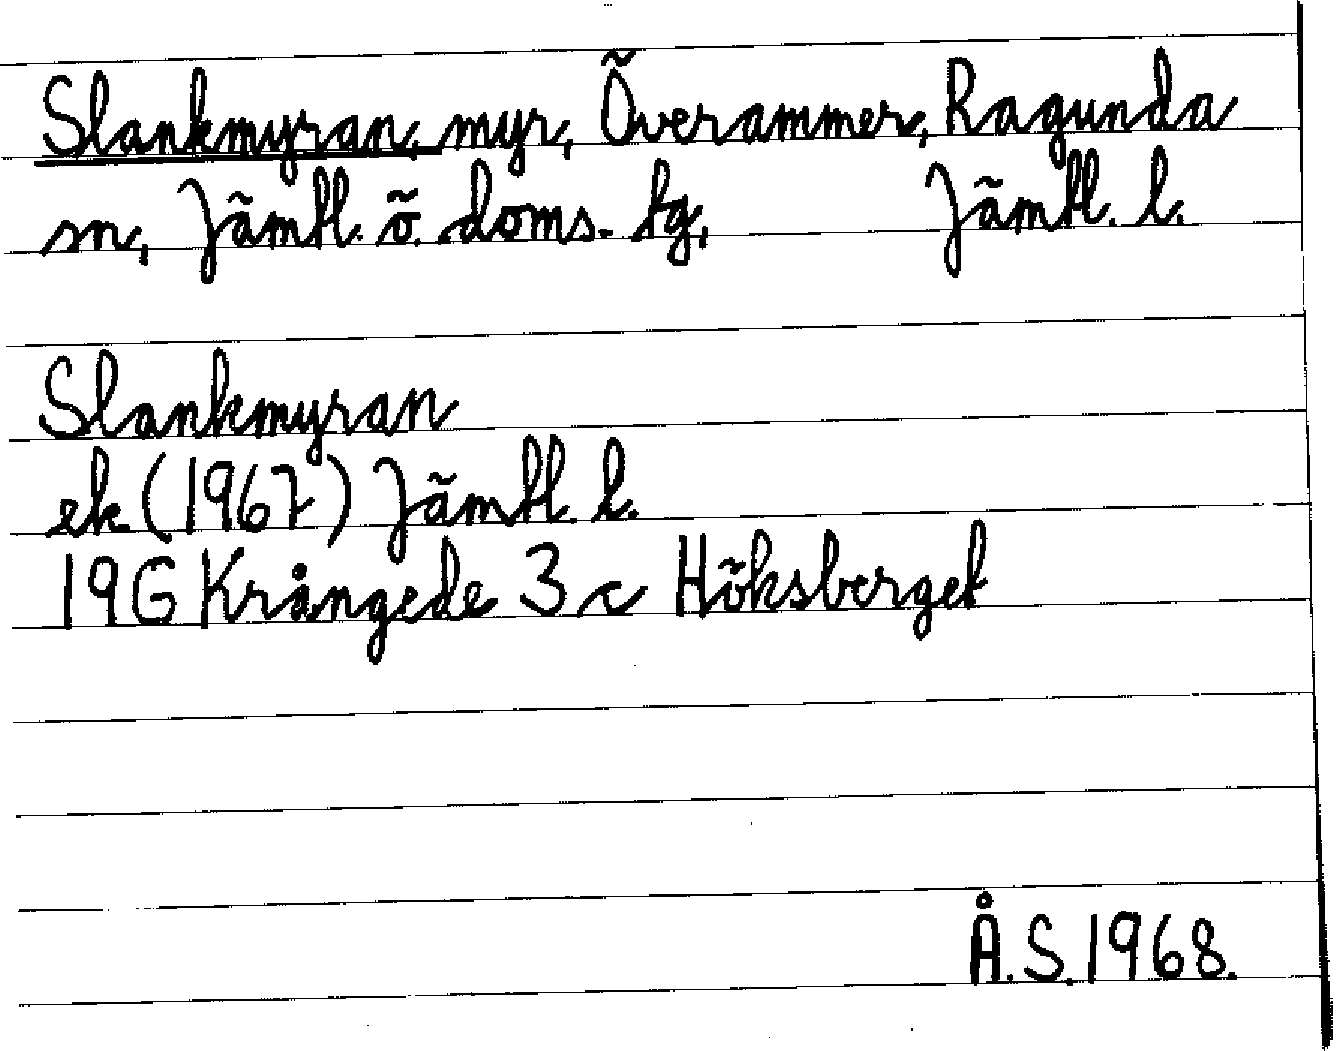 Slankmyran, myr, Överammer, Ragunda
sn, Jämtl. ö. doms. tg, Jämtl. l.
Slankmyran
ek (1967) Jämtl. l.
19G Krångede 3 c Höksberget
Å.S. 1968.